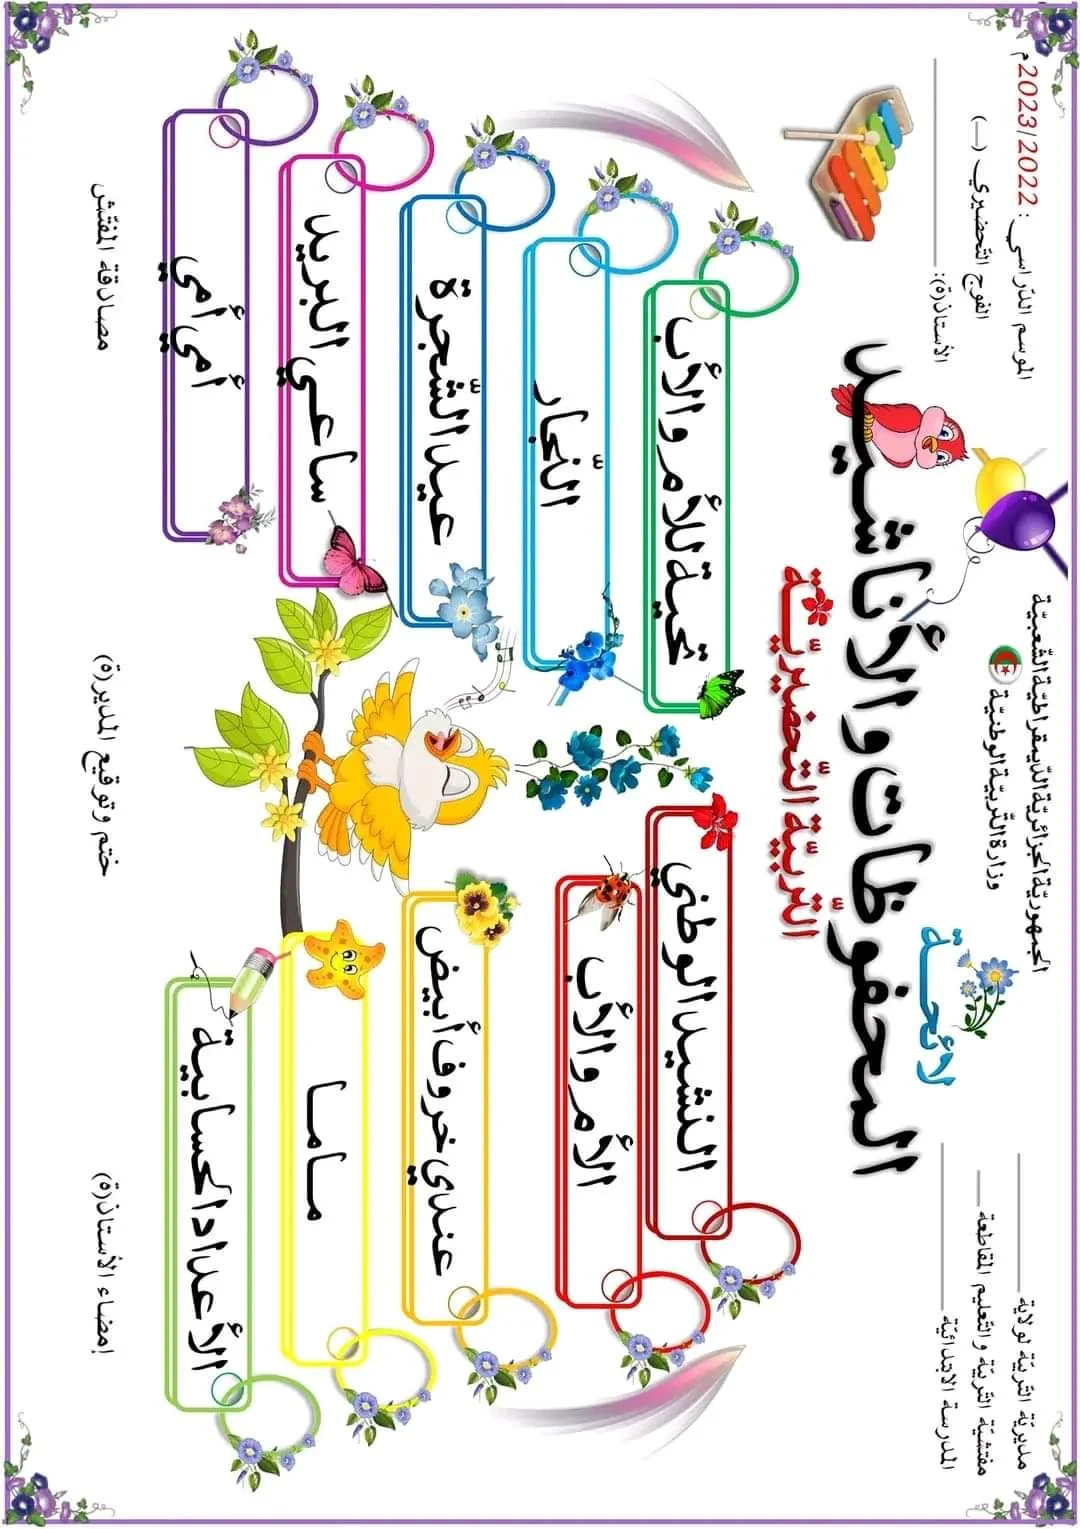 الجمهوريّة الجزائريّة الدّيمقراطيّة الشّعبيّة
وزارة التّربيّة الوطنيّة
مديريّة التّربيّة لولاية
مفتشيّة التّربيّة والتّعليم المقاطعة
المدرسة الابتدائيّة
الموسم الدّراسي : 2023/2022م
الفوج التّحضيري (—)
الأستاذ(ة):
لائحــة
المحفوظات والأناشيــد
التّربيّة التّحضيريّــة
النشيد الوطني
الأم والأب
عندي خروف أبيض
مــامــا
الأعداد الحسابية
تحية للأم والأب
النّجار
عيد الشّجرة
ساعي البريد
أمي أمي
إمضاء الأستاذ(ة)
ختم وتوقيع المدير(ة)
مصادقة المفتّش